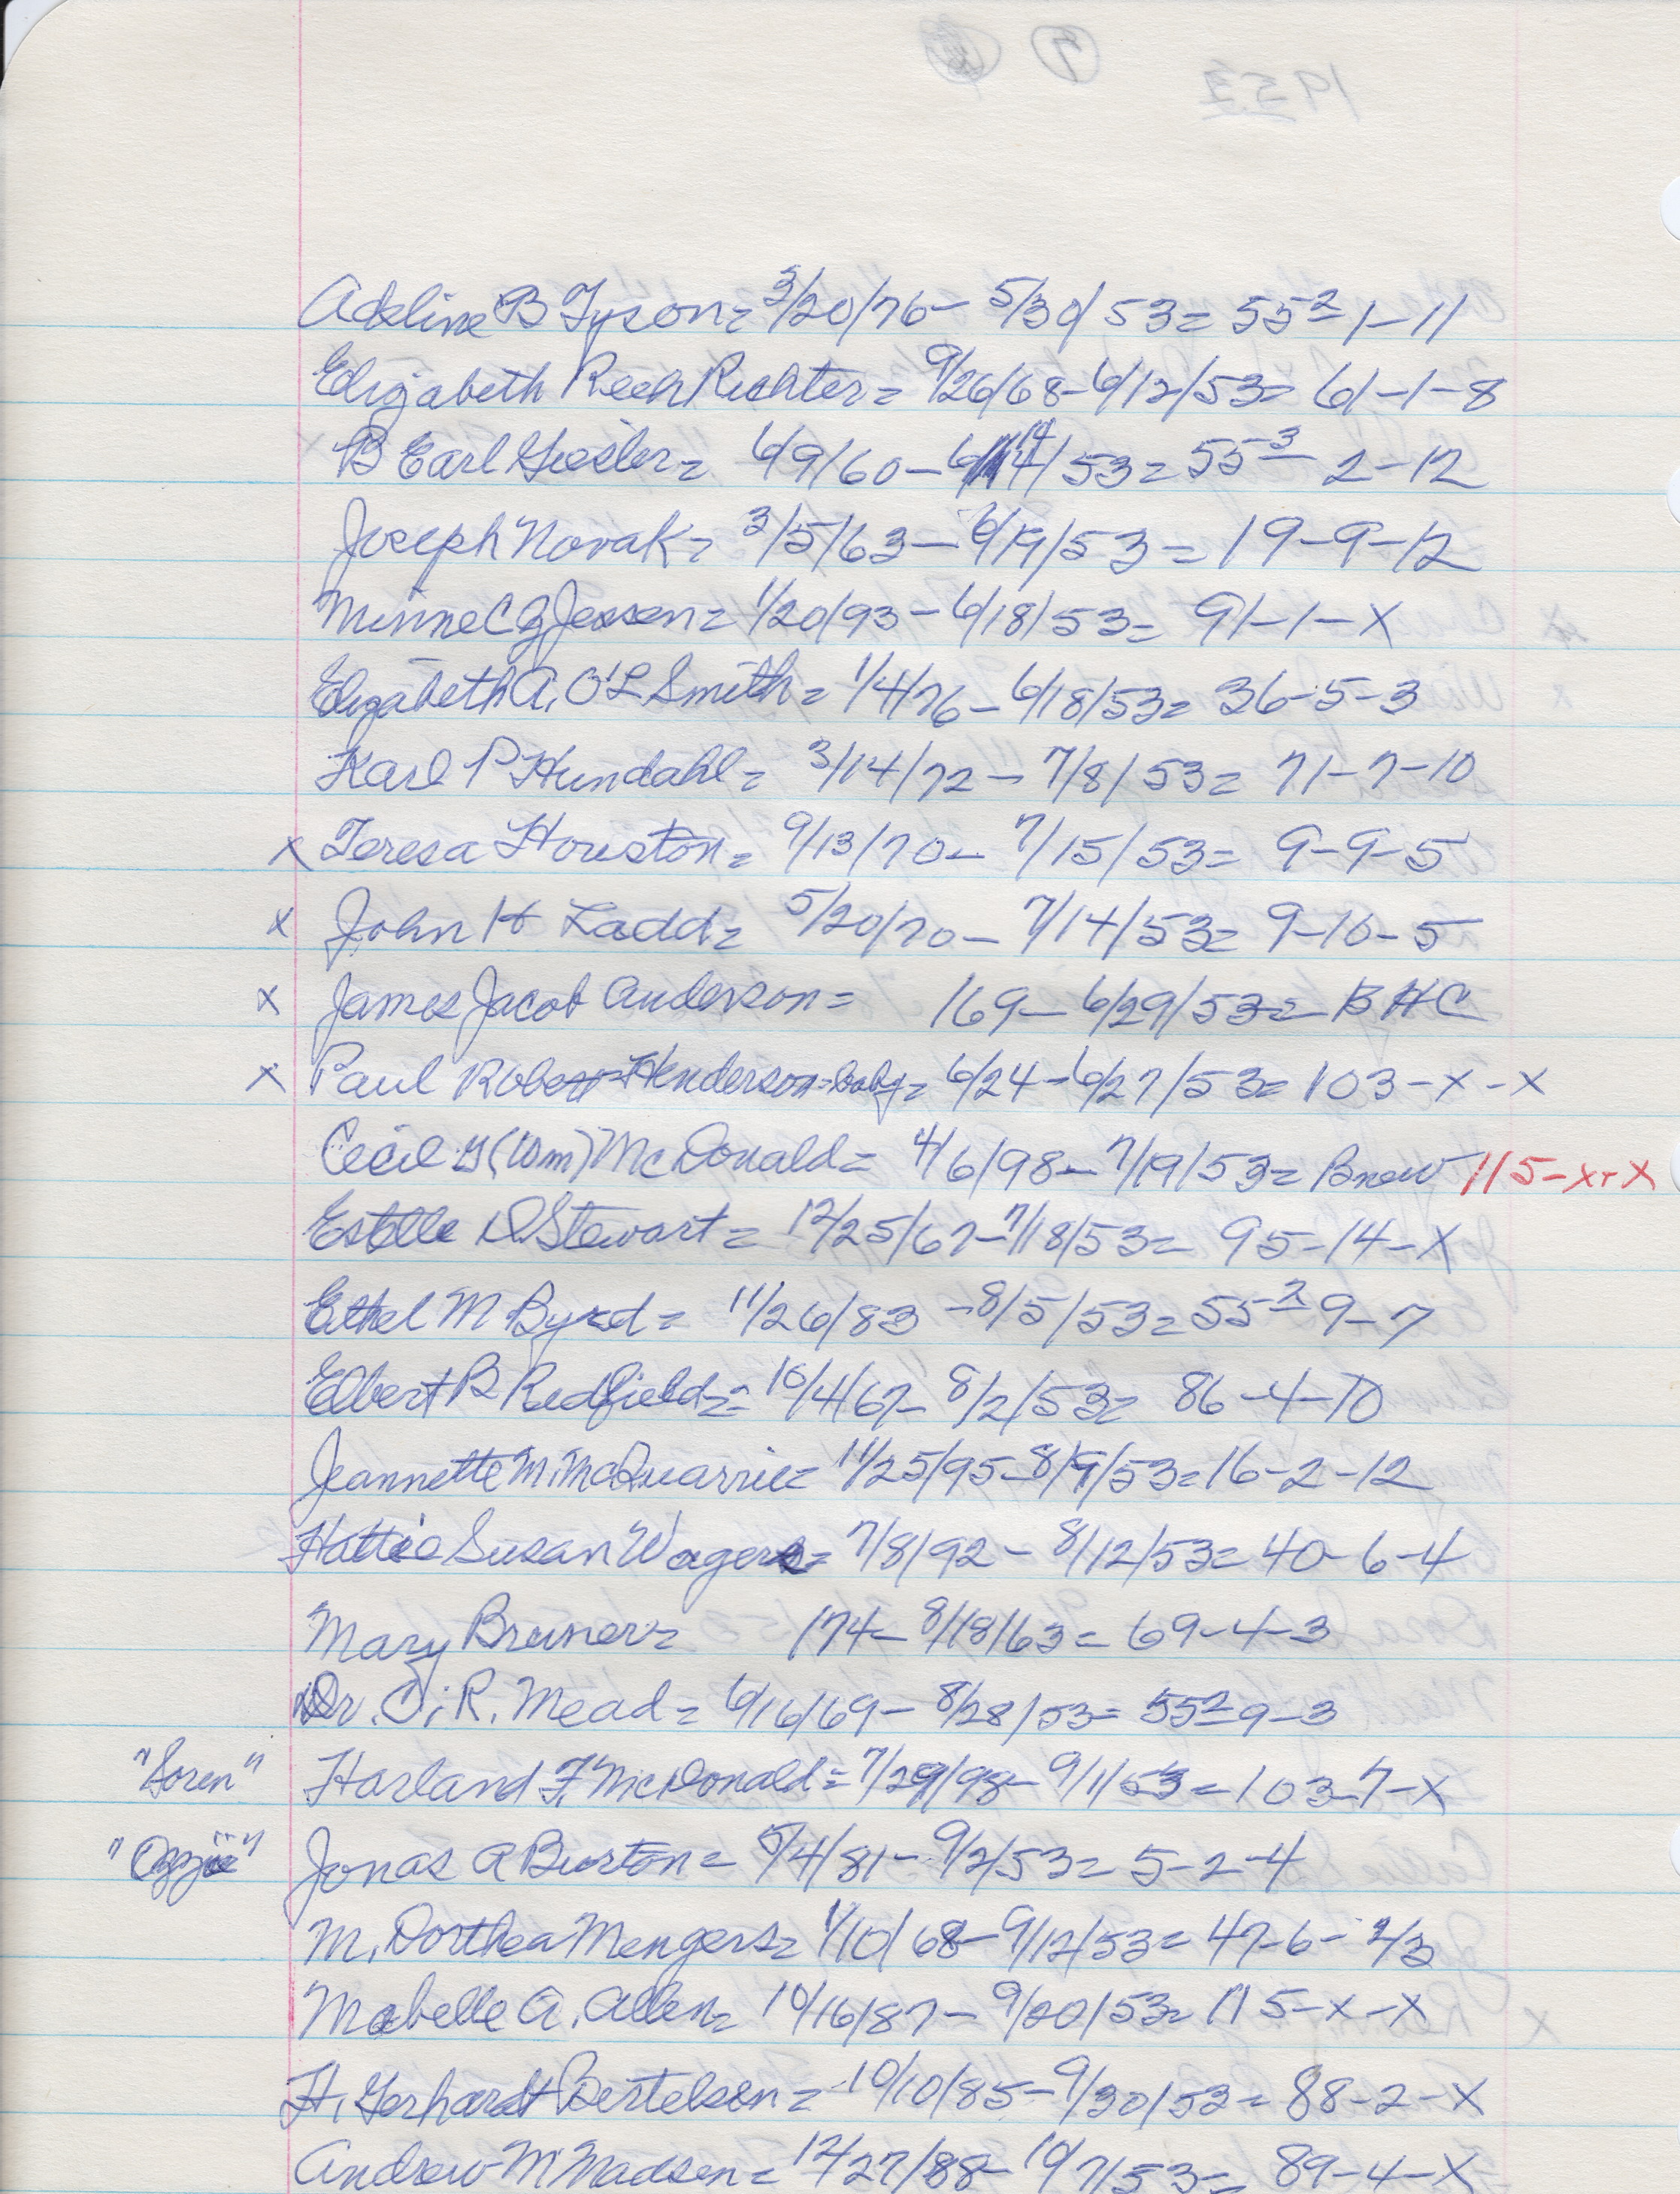 Adeline B Tyson = 3/20/76 - 5/30/53 = 55 2 1-11
Elizabeth Rech Richter = 9/26/68 - 6/12/53 = 61-1-8
B Earl Giesler = 6/9/60 - 6/14/53 = 55 3 2-12
Joseph Novak = 3/5/63 - 6/19/53 = 19-9-12
Minne C G Jessen = 1/20/93 - 6/18/53 = 91-1-X
Elizabeth A. O'L Smith = 1/4/76 - 6/18/53 = 36-5-3
Karl P Hundahl = 3/14/72 - 7/8/53 = 71-7-10
x Teresa Houston = 9/13/70 - 7/15/53 = 9-9-5
x John H Ladd = 5/20/70 - 7/14/53 = 9-10-5
x James Jacob Anderson = 169 - 6/29/53 = BHC
x Paul Robert Henderson = baby = 6/24 - 6/27/53 = 103-x-x
Cecil G (Wm) McDonald = 4/6/98 - 7/19/53 = Bnew 115-x-x
Estelle D Stewart = 12/25/67 - 7/18/53 = 95-14-X
Ethel M Byrd = 11/26/83 - 8/5/53 = 55 2 9-7
Elbert B Redfield = 10/4/67 - 8/2/53 = 86-4-10
Jeannette M. McQuarrie = 11/25/95 - 8/9/53 = 16-2-12
Hattie Susan Wagers = 7/8/92 - 8/12/53 = 40-6-4
Mary Bruner = 174 - 8/18/63 = 69-4-3
Dr. O. R. Mead = 6/16/69 - 8/28/53 = 55 2 9-3
"Soren" Harland F. McDonald = 7/29/98 - 9/1/53 = 103-7-X
"Ozzie" Jonas A Burton = 5/4/81 - 9/2/53 = 5-2-4
M. Dorthea Mengers = 1/10/68 - 9/12/53 = 47-6-2/3
Mabelle A. Allen = 10/16/87 - 9/20/53 = 115-x-x
H. Gerhardt Bertelsen = 10/10/85 - 9/30/53 = 88-2-X
Andrew M Madsen = 12/27/88 - 10/7/53 = 89-4-X